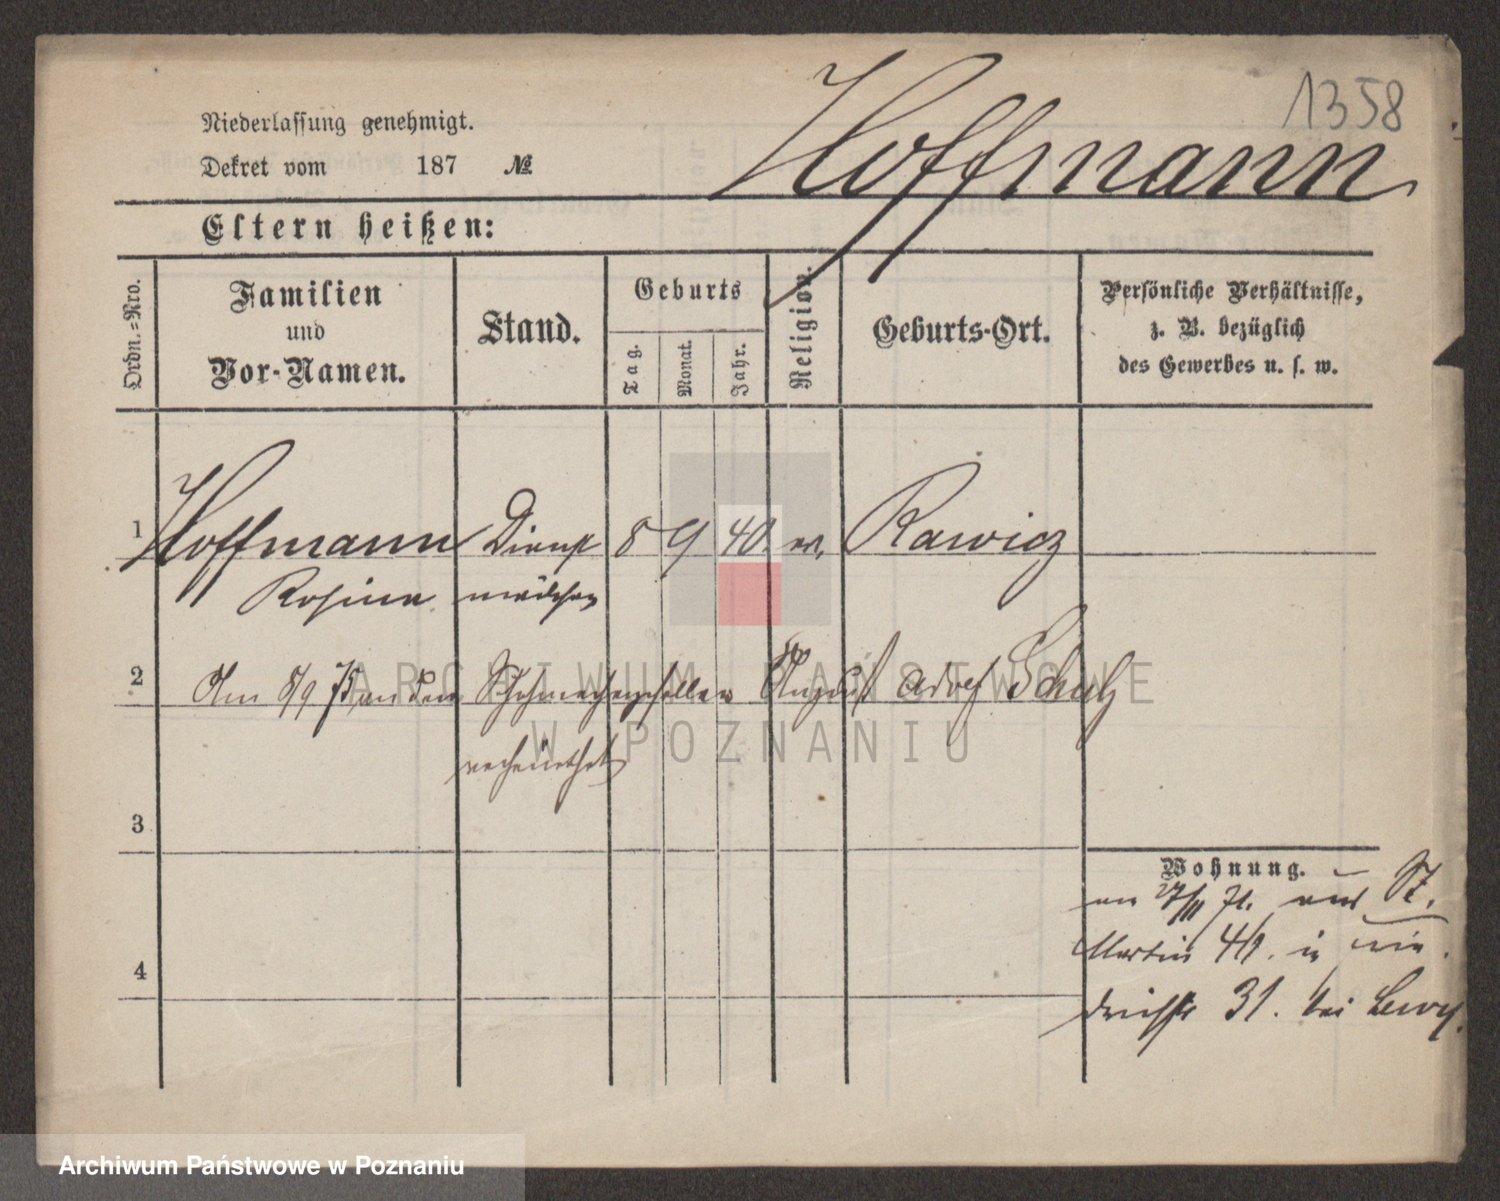 1358
Hoffmann
Niederlassung genehmigt.
Dekret vom 187 №
Eltern heißen:
Ordn.=Nro.
Familien
und
Vor-Namen.
Stand.
Geburts
Tag.
Monat.
Jahr.
Religion.
Geburts-Ort.
Persönliche Verhältnisse,
z. B. bezüglich
des Gewerbes u. s. w.
1 Hoffmann Dienst 8 9 40. ev. Rawicz
Rosina mädchen
2 Am 8/9 75 an den Schuhmachergesellen August Adolf Schulz
verheirathet
3
Wohnung.
am 27/II 71. aus St.
Martin 41. in
4
31. bei Lewy.
ARCHIWUM PAŃSTWOWE
W POZNANIU
Archiwum Państwowe w Poznaniu